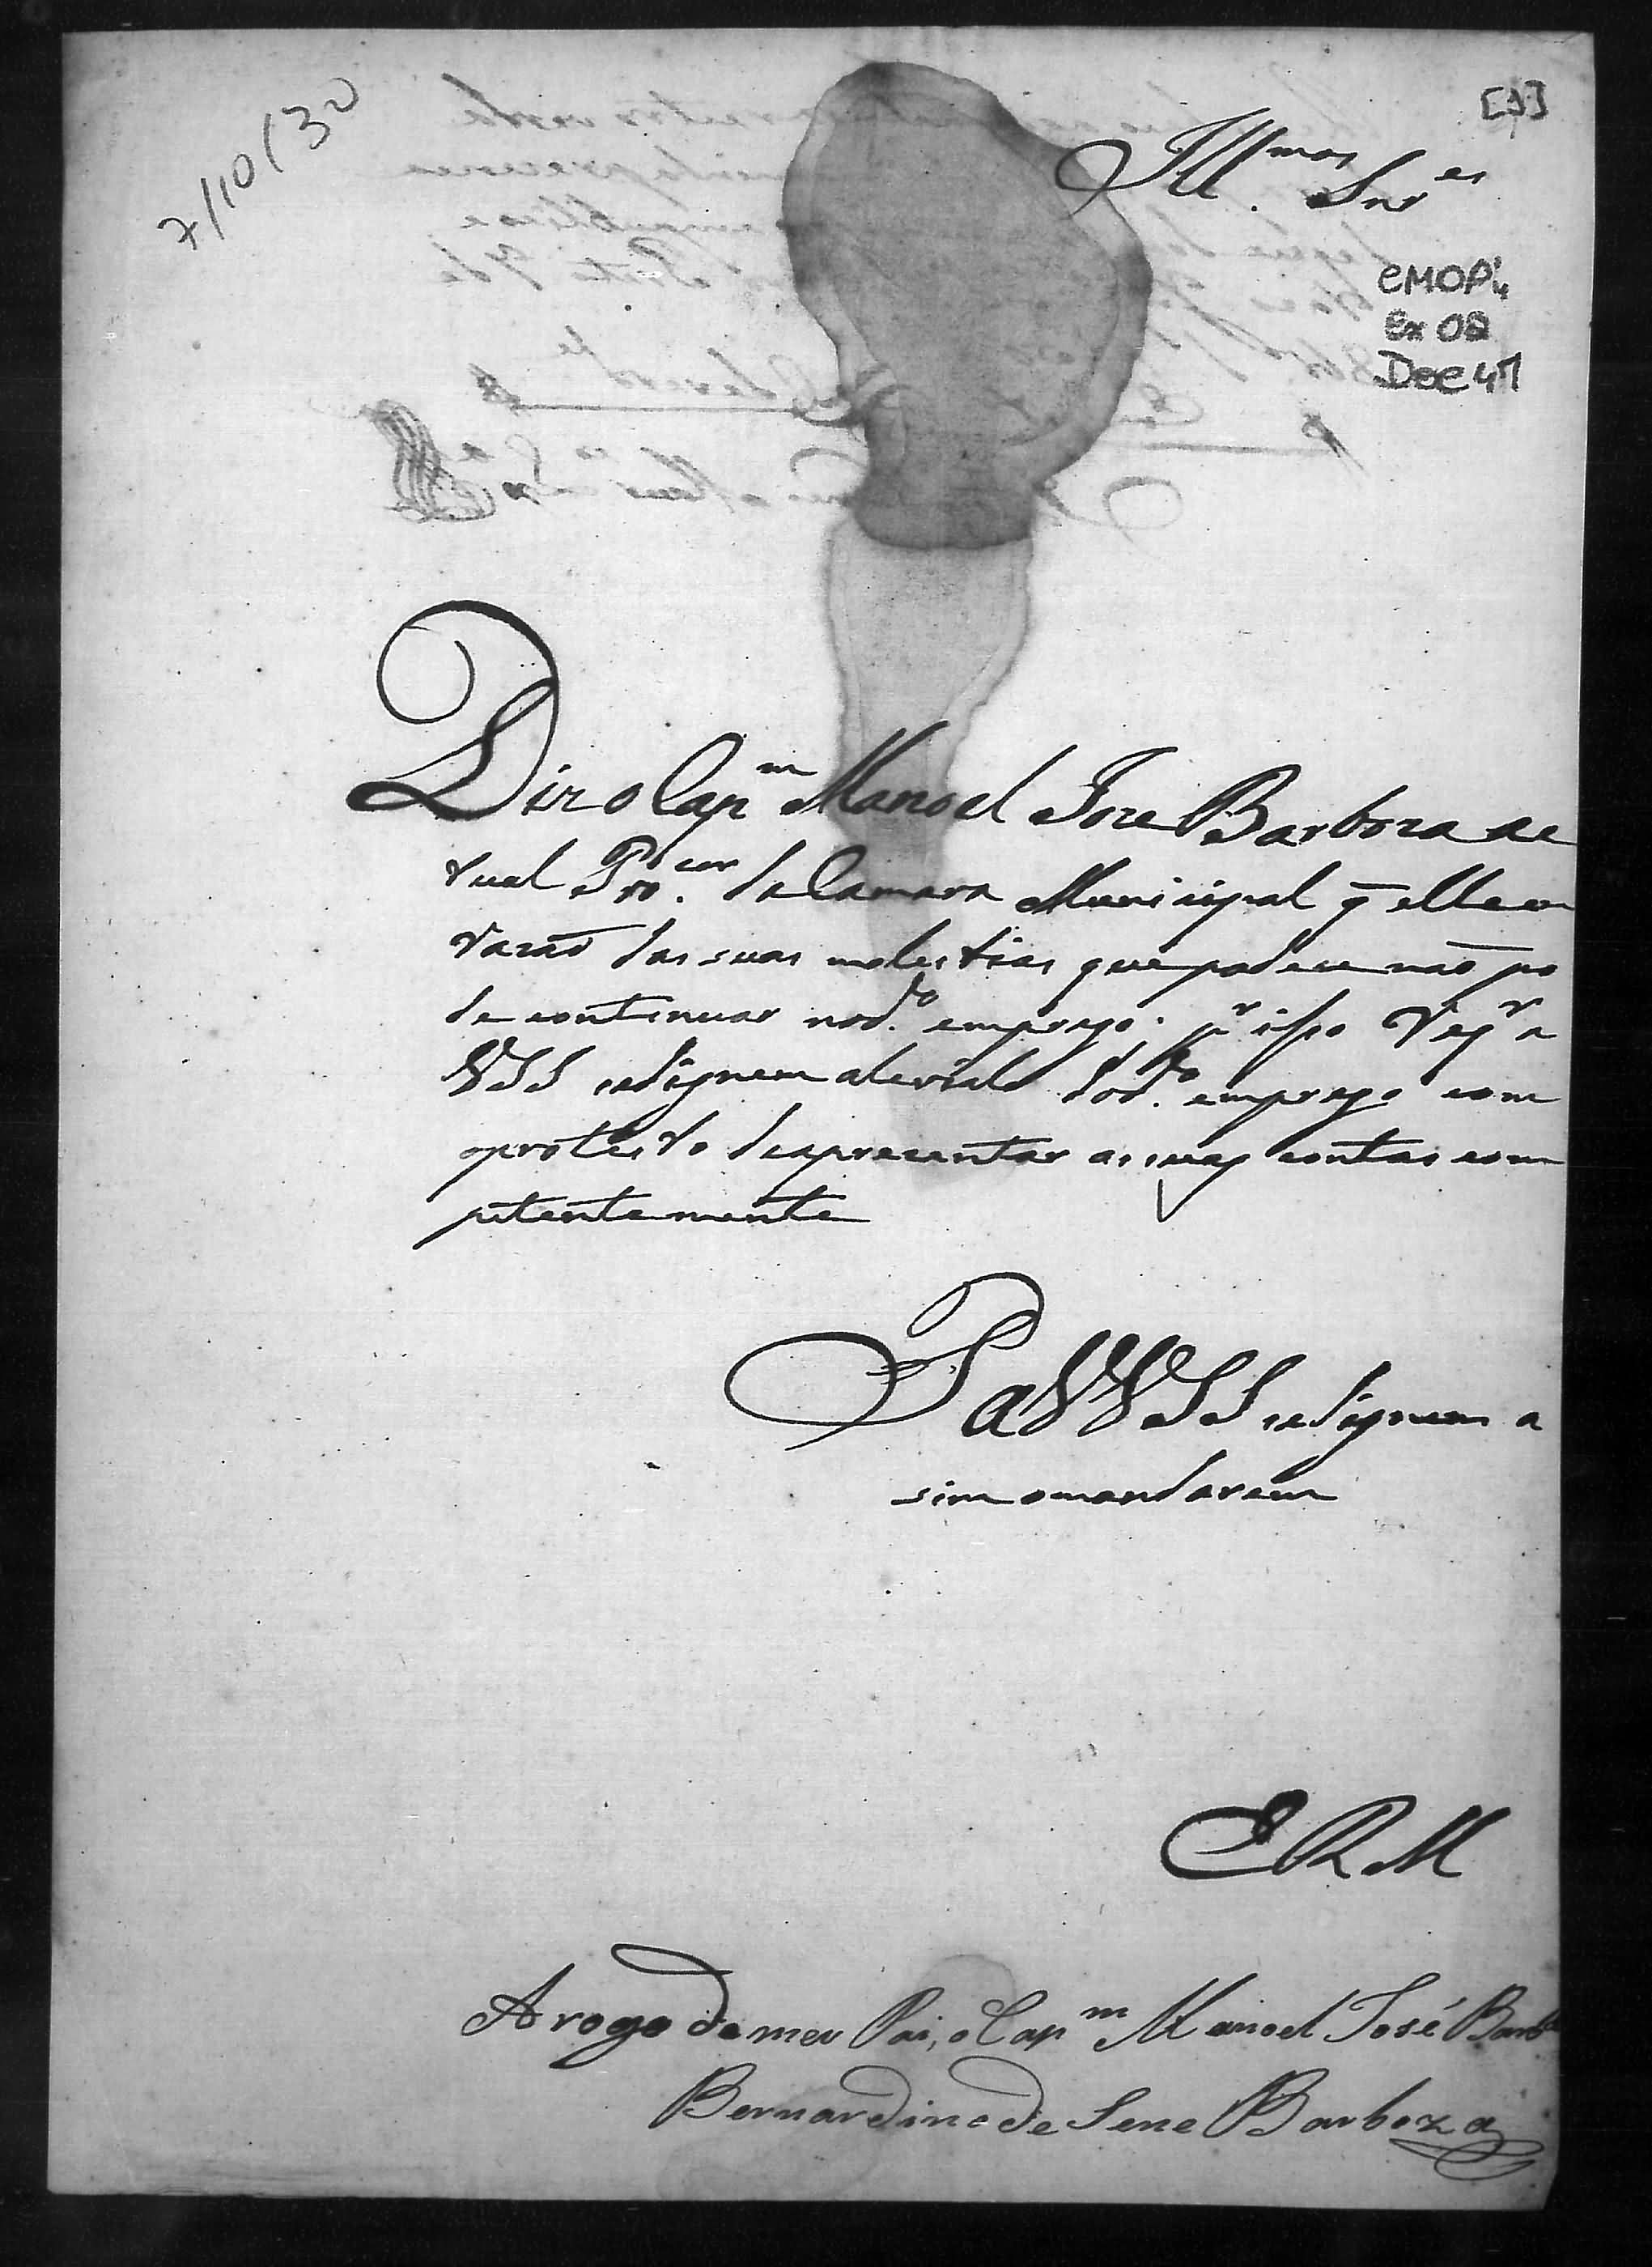 7/10/30
[1]
Ill.mos Snr.es
CMOP
Cx 02
Doc 47
Diz o Cap.m Manoel Joze Barboza ac
tual Pro.cor da Camara Municipal q̃ elle em
razaõ das suas molestias que padece naõ po
de continuar no d.to emprego. p.r isso reqr a
VSS se dignem alevialo do d.to emprego com
oprotesto de apresentar as suas contas com
petentemente
P a VVSS se dignem a
sim o mandarem
E R M
A rogo de meu Pai, o Cap.m Manoel José Barb.a
Bernardino de Sene Barboza